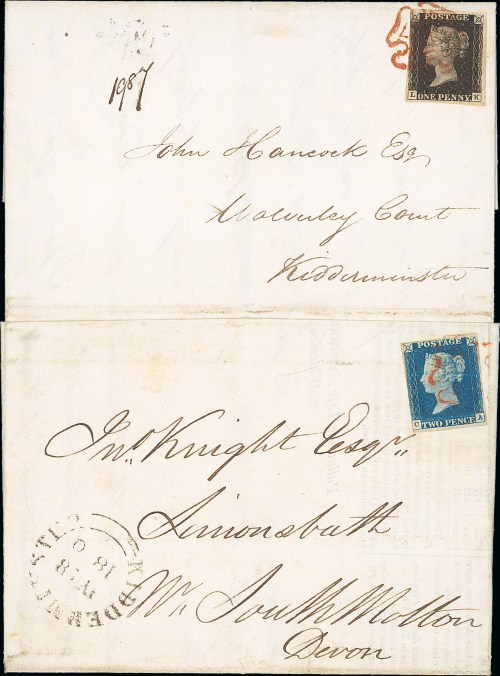 POSTAGE
L K
ONE PENNY
1987
John Hancock Esq
Wolverley Court
Kidderminster
POSTAGE
C A
TWO PENCE
Jno. Knight Esqr.
Simonsbath
Nr. South Molton
Devon
KIDDERMINSTER